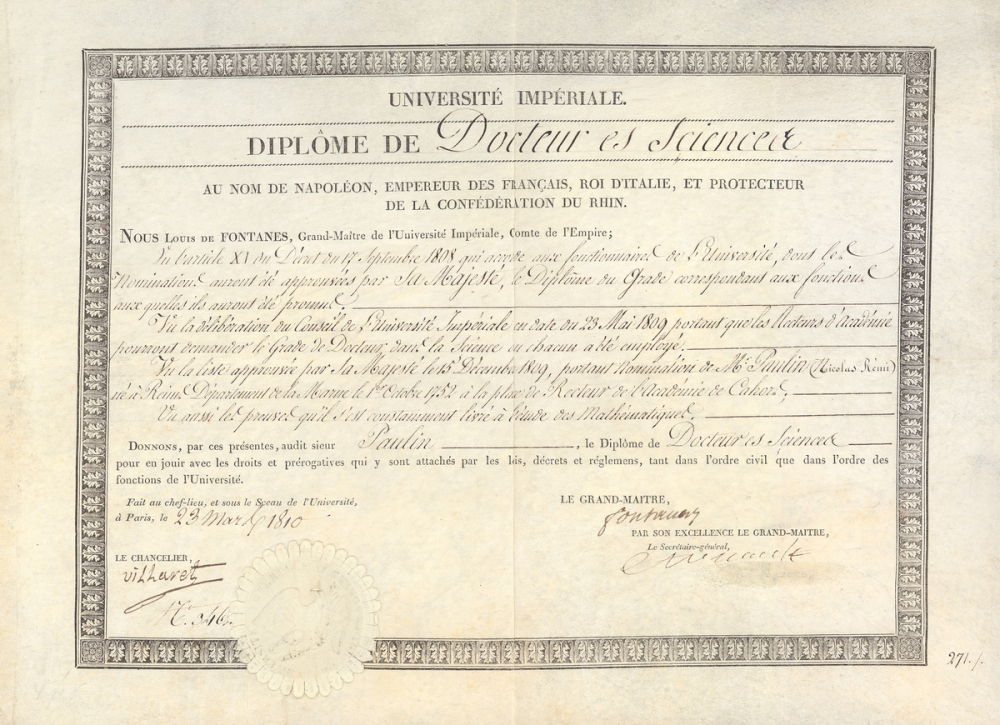 UNIVERSITÉ IMPÉRIALE.
DIPLÔME DE Docteur es Sciences
AU NOM DE NAPOLÉON, EMPEREUR DES FRANÇAIS, ROI D'ITALIE, ET PROTECTEUR
DE LA CONFÉDÉRATION DU RHIN.
NOUS LOUIS DE FONTANES, Grand-Maître de l'Université Impériale, Comte de l'Empire;
Vu l'article XV du Décret du 17 Septembre 1808 qui accorde aux fonctionnaires de l'Université, dont les
Nominations auront été approuvées par Sa Majesté, le Diplôme du Grade correspondant aux fonctions
aux quelles ils auront été promus
Vu la délibération du Conseil de l'Université Impériale en date du 23 Mai 1809 portant que les Recteurs d'Académie
pourront demander le Grade de Docteur dans la Science ou chacun a été employé.
Vu la liste approuvée par Sa Majesté le 15 Décembre 1809, portant Nomination de Mr. Paulin (Nicolas Rémi)
né à Reims Département de la Marne le 1er Octobre 1752 à la place de Recteur de l'Académie de Cahors,
Vu aussi les preuves qu'il s'est constamment livré à l'étude des Mathématiques,
DONNONS, par ces présentes, audit sieur Paulin, le Diplôme de Docteur es Sciences
pour en jouir avec les droits et prérogatives qui y sont attachés par les lois, décrets et réglemens, tant dans l'ordre civil que dans l'ordre des
fonctions de l'Université.
Fait au chef-lieu, et sous le Sceau de l'Université,
à Paris, le 23 Mars 1810
LE GRAND-MAITRE,
Fontanes
PAR SON EXCELLENCE LE GRAND-MAITRE,
Le Secrétaire-général,
LE CHANCELIER,
Villaret
N° 346.
271./.